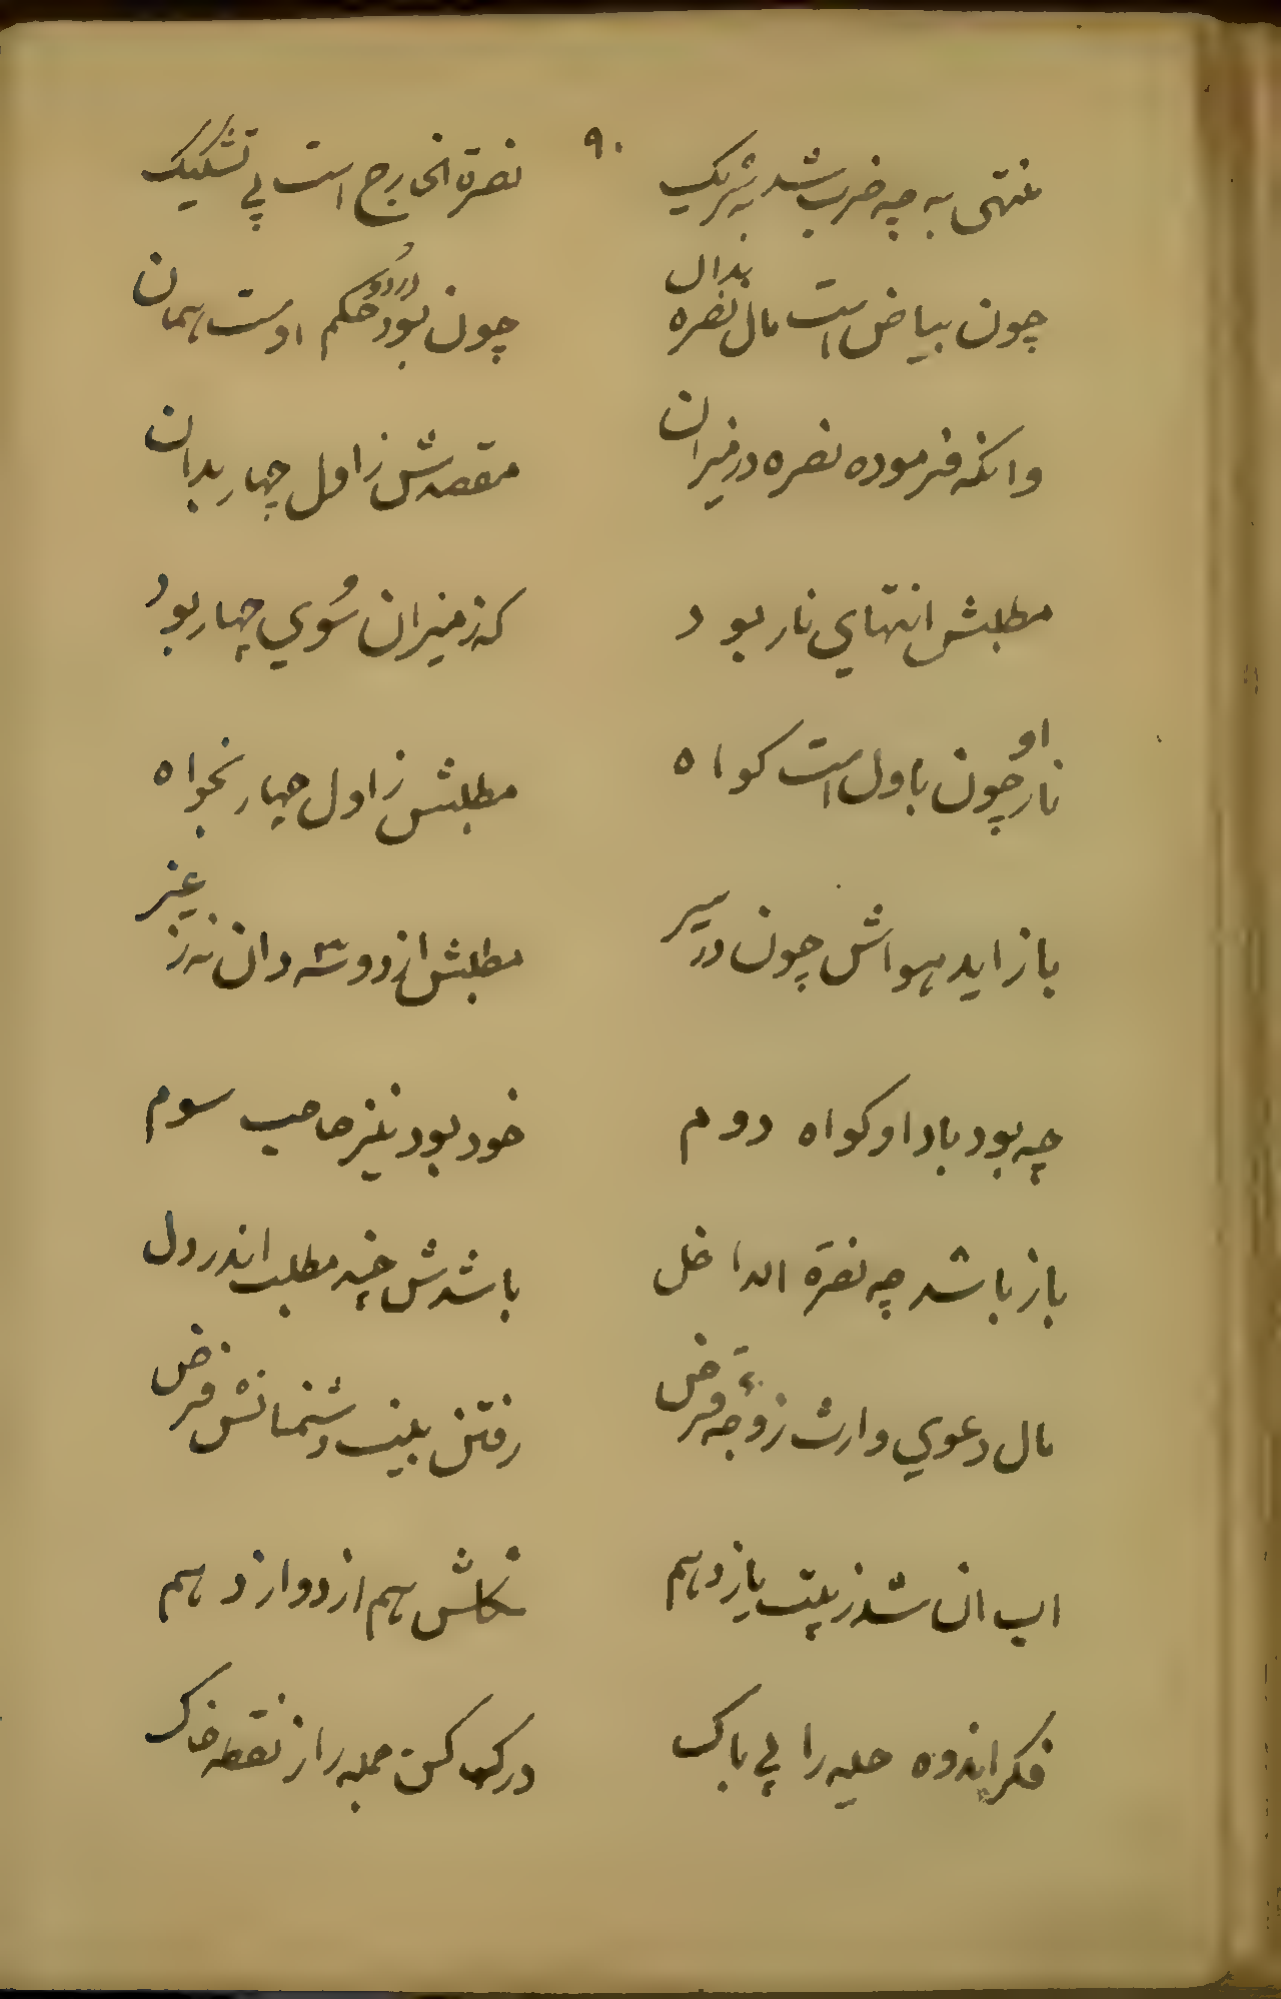 ۹۰
منتهی به چه ضرب شد به شریک نصرة الخارج است بی تشکیک
چون بیاض است مال نصره بدال چون بود در دو حکم اوست همان
وانکه فرموده نصره در میزان مقصدش ز اول چهار بدان
مطلبش انتهای نار بود که ز میزان سُوی چهار بود
نار او چون باول است کواه مطلبش ز اول چهار بخواه
باز اید هواش چون در سیر مطلبش از دو سه دان نه ز غیر
چه بود باد او کواه دوم خود بود نیز صاحب سوم
باز باشد چه نصرة الداخل باشدش خپه مطلب اندر دل
مال دعوی وارث زوجه قرض رفتن بیند دشمنانش فرض
اب ان شد ز بیت یازدهم خاکش هم از دوازدهم
فکر اندوه حلیه را بی باک درک کن جمله را از نقطه خاک